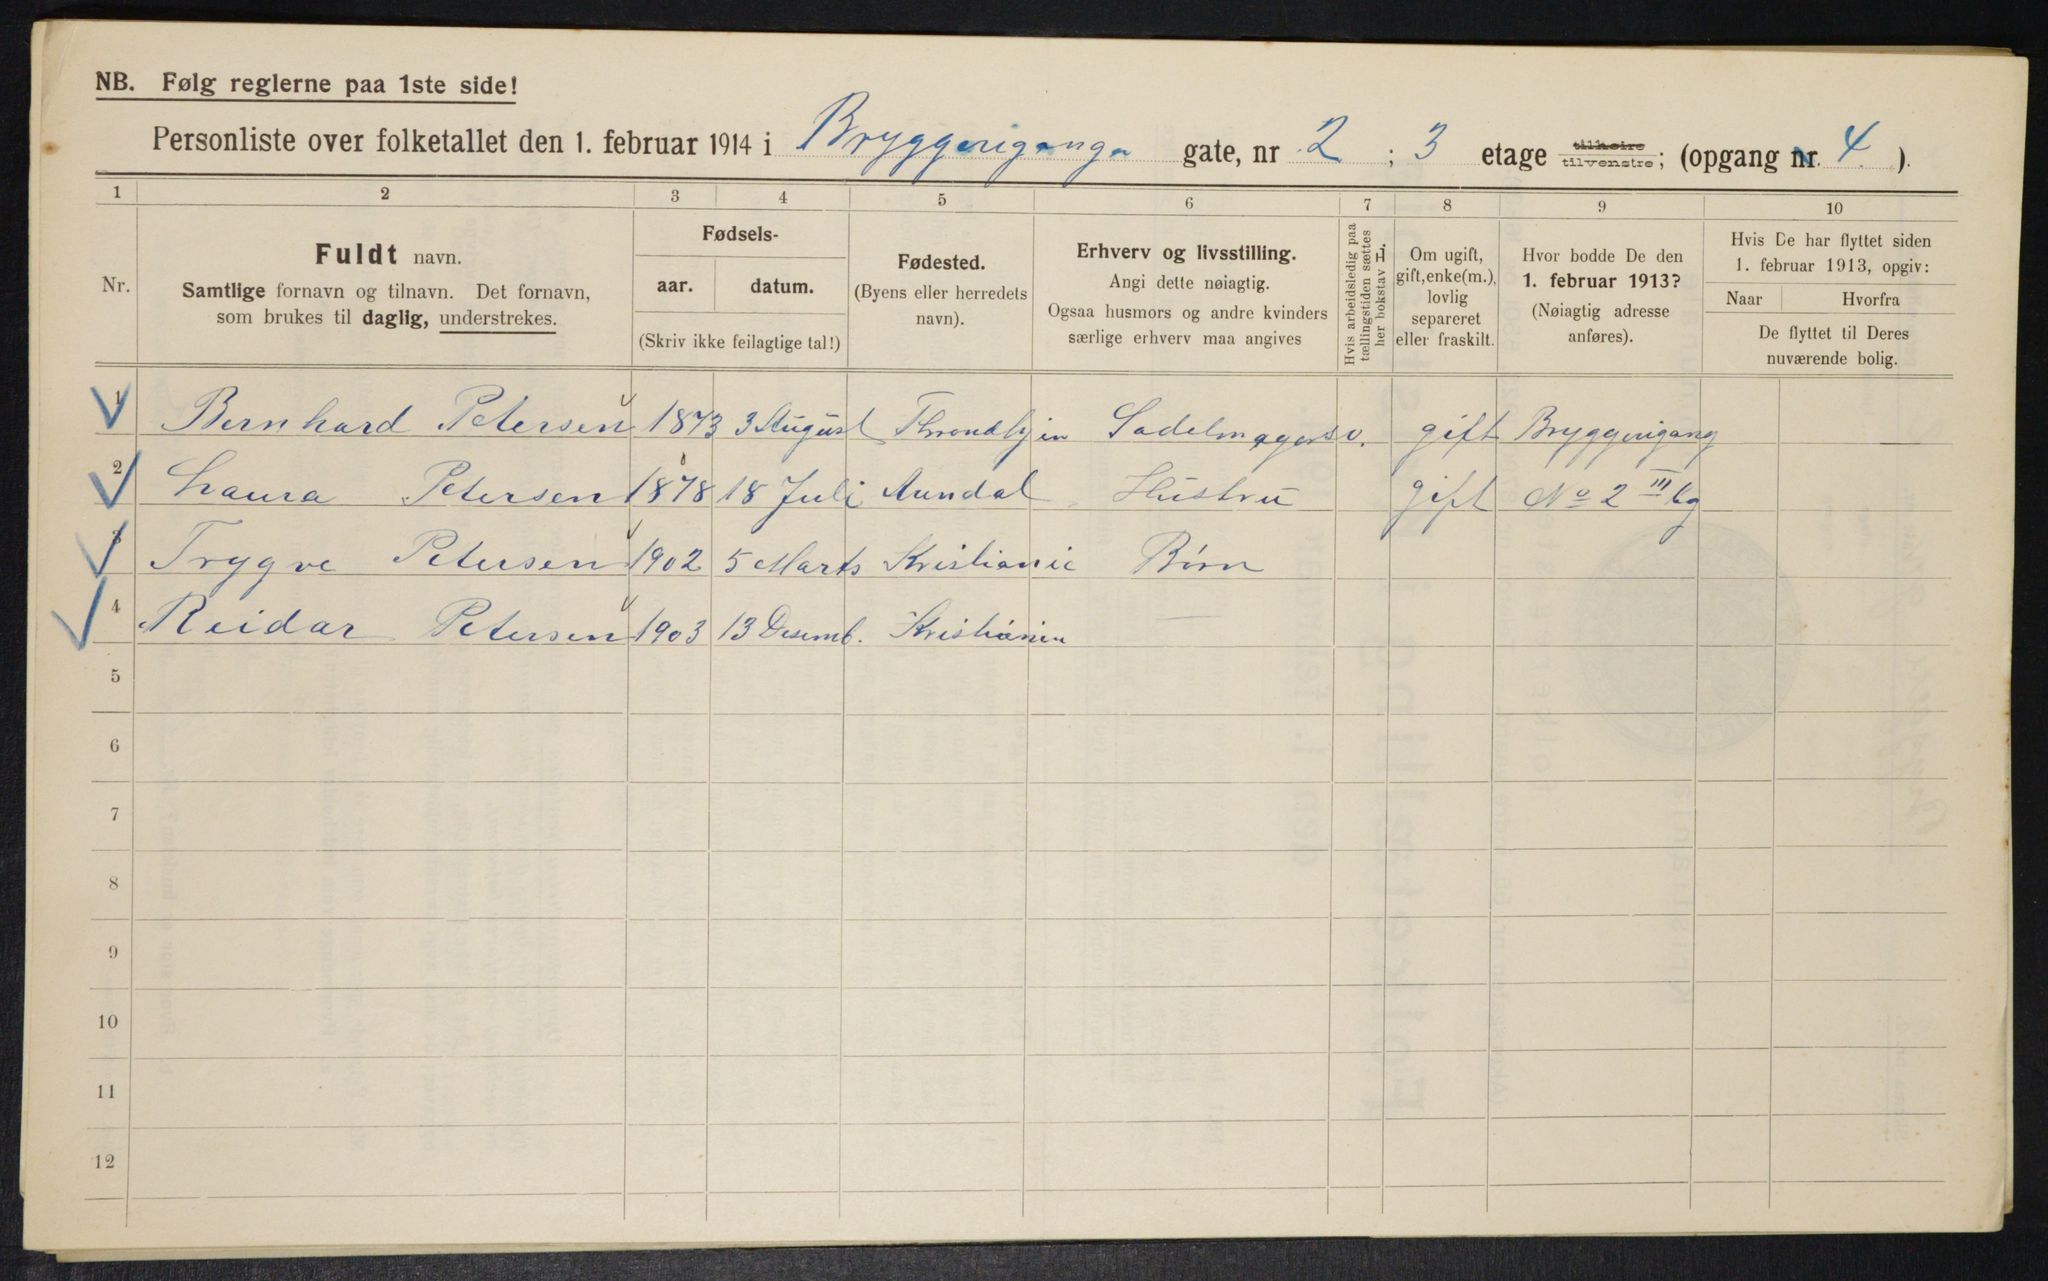 NB. Følg reglerne paa 1ste side!
Personliste over folketallet den 1. februar 1914 i Bryggeriganga gate, nr 2 ; 3 etage tilhøire tilvenstre; (opgang nr. 4 ).
1 2 3 4 5 6 7 8 9 10
Nr.
Fuldt navn.
Samtlige fornavn og tilnavn. Det fornavn,
som brukes til daglig, understrekes.
Fødsels-
aar. datum.
(Skriv ikke feilagtige tal!)
Fødested.
(Byens eller herredets
navn).
Erhverv og livsstilling.
Angi dette nøiagtig.
Ogsaa husmors og andre kvinders
særlige erhverv maa angives
Hvis arbeidsledig paa
tællingstiden sættes
her bokstav L.
Om ugift,
gift, enke(m.),
lovlig
separeret
eller fraskilt.
Hvor bodde De den
1. februar 1913?
(Nøiagtig adresse
anføres).
Hvis De har flyttet siden
1. februar 1913, opgiv:
Naar Hvorfra
De flyttet til Deres
nuværende bolig.
1 Bernhard Petersen 1873 3 August Throndhjem Sadelmagersv. gift Bryggerigang
2 Laura Petersen 1878 18 Juli Hustru gift No 2 III
3 Trygve Petersen 1902 5 Marts Kristiania Børn
4 Reidar Petersen 1903 13 Desemb. Kristiania —
5
6
7
8
9
10
11
12